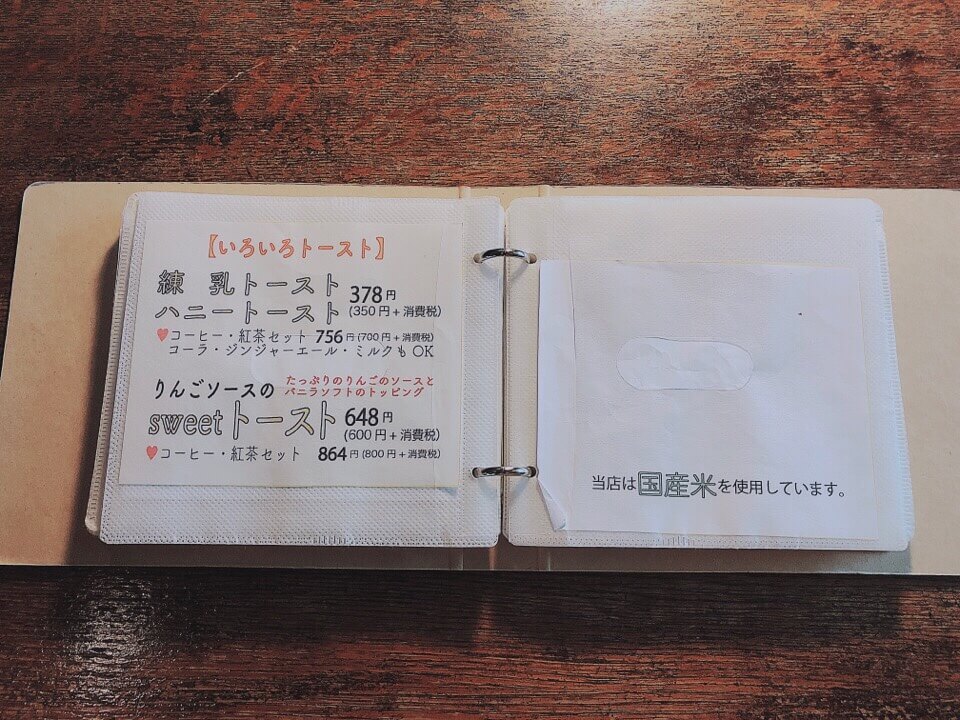 【いろいろトースト】
練 乳トースト
ハニートースト 378円
(350円+消費税)
♥コーヒー・紅茶セット 756円(700円+消費税)
コーラ・ジンジャーエール・ミルクも OK
りんごソースの たっぷりのりんごのソースと
バニラソフトのトッピング
sweetトースト 648円
(600円+消費税)
♥コーヒー・紅茶セット 864円(800円+消費税)
当店は国産米を使用しています。